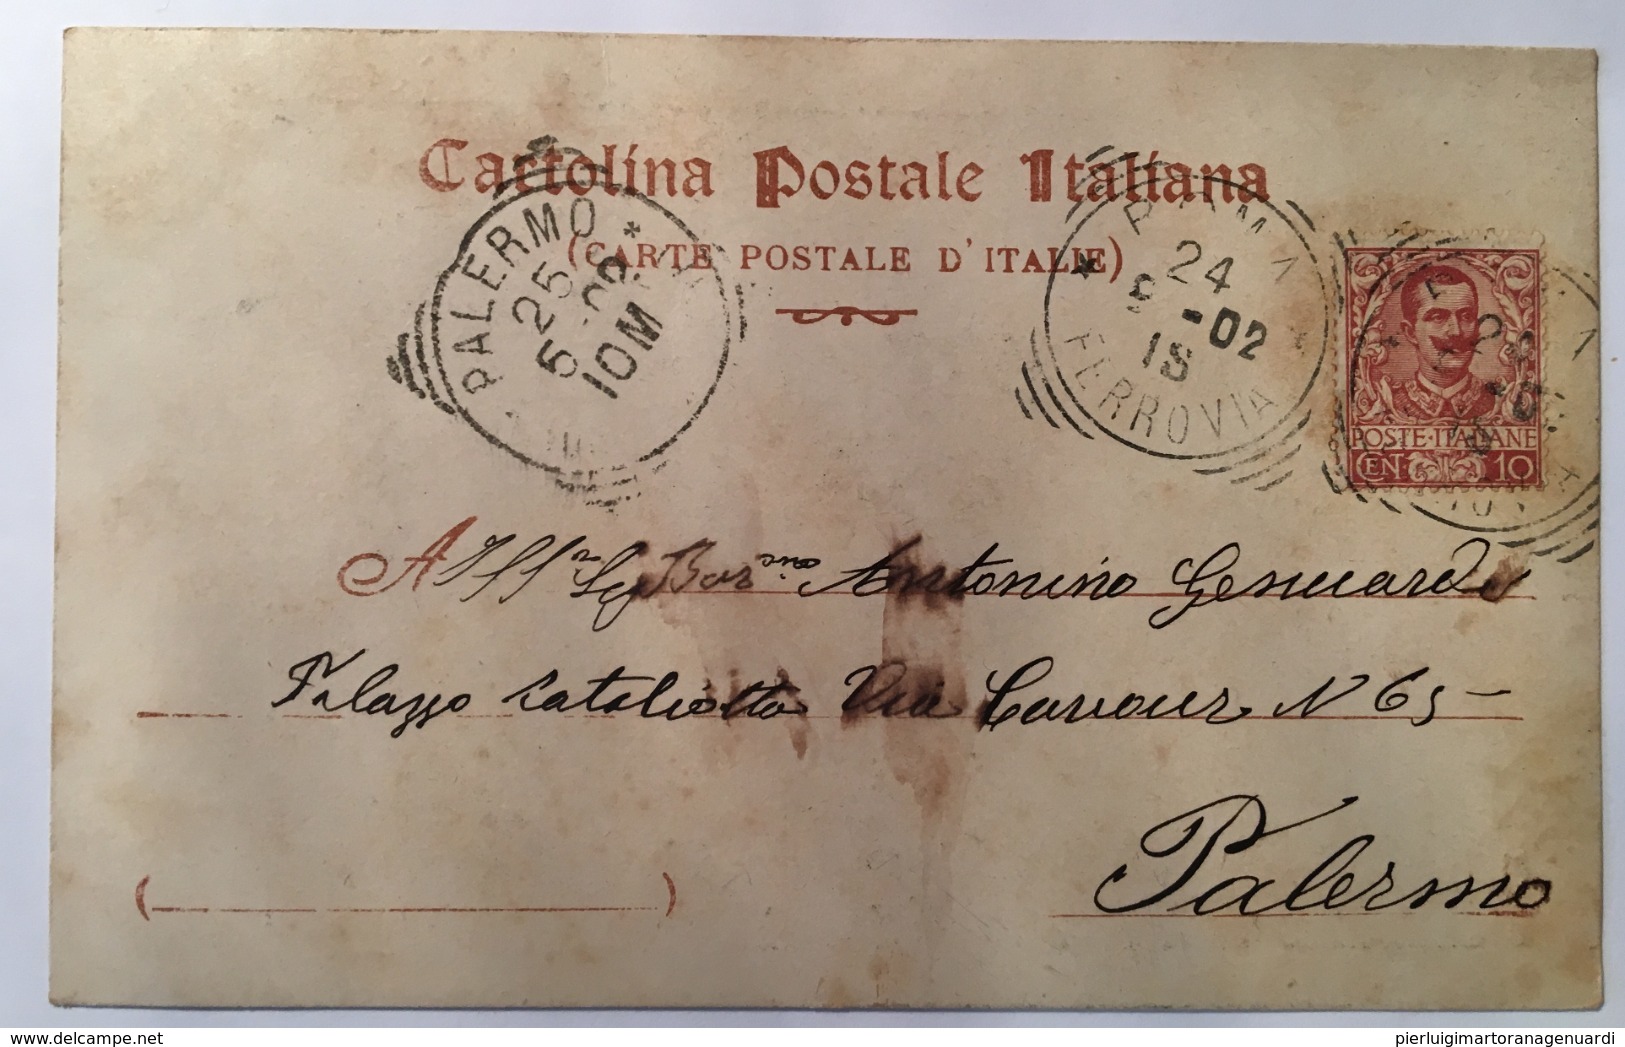 Cartolina Postale Italiana
(CARTE POSTALE D'ITALIE)
PALERMO
25
5-02
10M
ROMA
24
5-02
18
FERROVIA
POSTE·ITALIANE
CEN 10
A Antonino Genuardi
Palazzo Cataliotta Via Cavour N 65
Palermo
delcampe.net
pierluigimartoranagenuardi